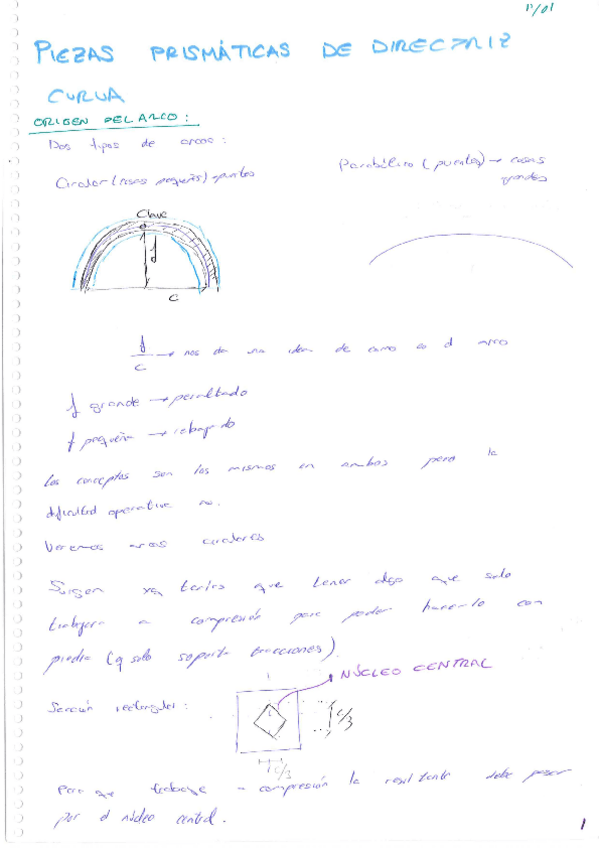 P/01
PIEZAS PRISMÁTICAS DE DIRECTRIZ
CURVA
ORIGEN DEL ARCO:
Dos tipos de arcos:
Parabólico (puentes) → cosas
grandes
Circular (cosas pequeñas)
Clave
f
c
f/c → nos da una idea de como es el arco
f grande → peraltado
f pequeña → rebajado
Los conceptos son los mismos en ambos pero la
dificultad operativa no.
Veremos arcos circulares
Surgen tener algo que solo
trabajara a compresión para poder hacerlo con
piedra (q solo soporta tracciones).
NÚCLEO CENTRAL
Sección rectangular:
c/3
c/3
Para que trabaje a compresión la resultante debe pasar
por el núcleo central.
1